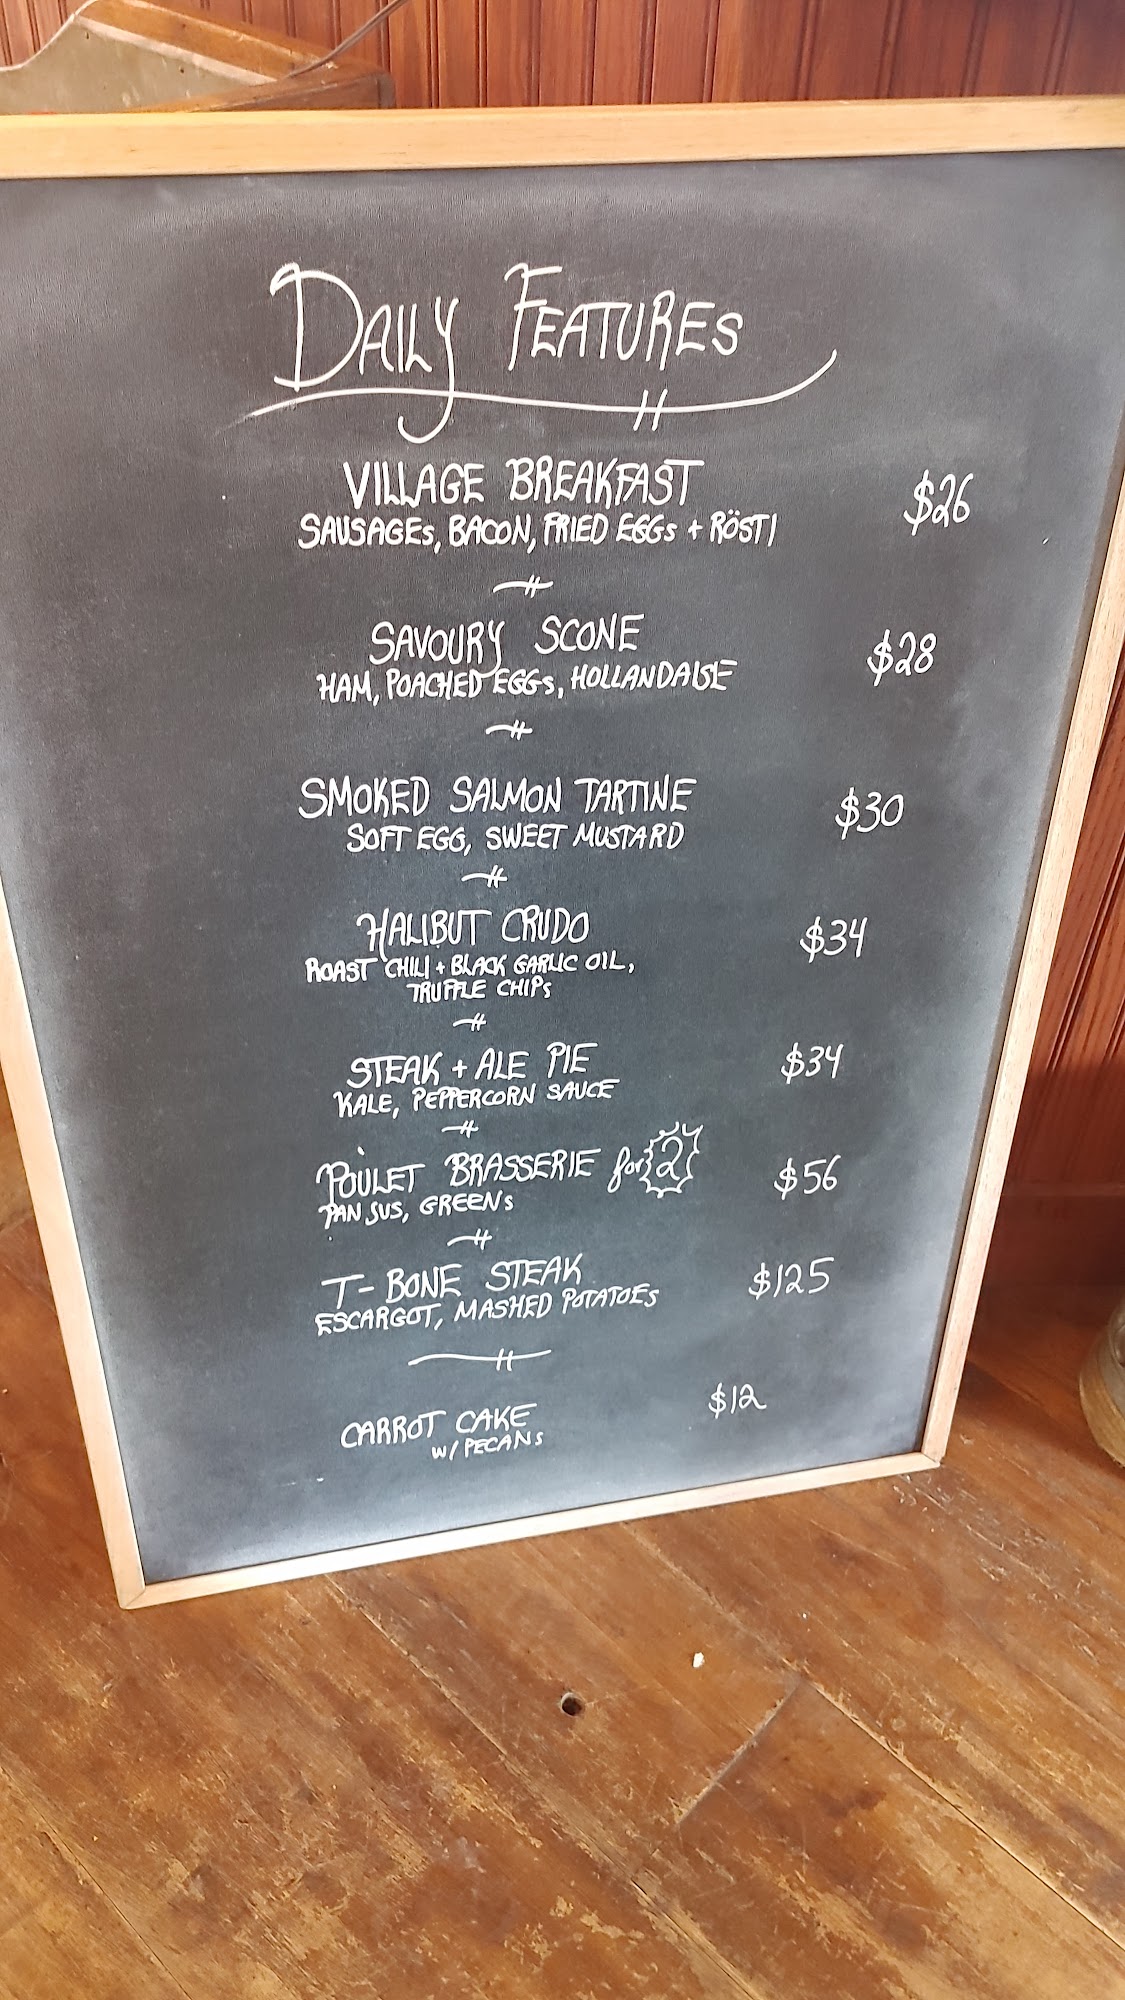 DAILY FEATURES
VILLAGE BREAKFAST $26
SAUSAGES, BACON, FRIED EGGS + RÖSTI
SAVOURY SCONE $28
HAM, POACHED EGGS, HOLLANDAISE
SMOKED SALMON TARTINE $30
SOFT EGG, SWEET MUSTARD
HALIBUT CRUDO $34
ROAST CHILI + BLACK GARLIC OIL,
TRUFFLE CHIPS
STEAK + ALE PIE $34
KALE, PEPPERCORN SAUCE
POULET BRASSERIE for 2 $56
PAN JUS, GREENS
T-BONE STEAK $125
ESCARGOT, MASHED POTATOES
CARROT CAKE $12
W/ PECANS